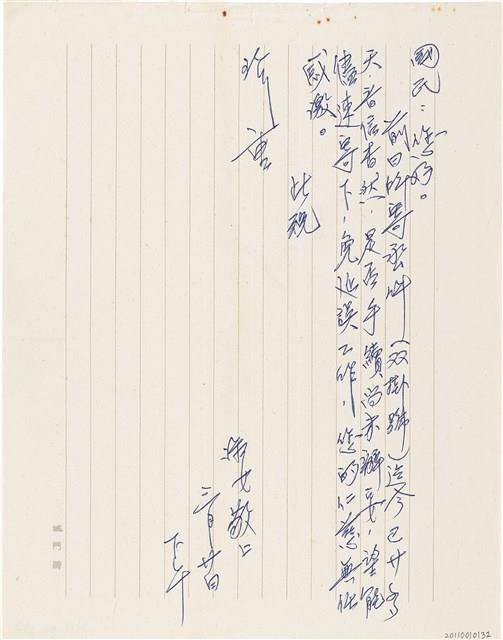 國民：您好。
前日所寄函件（双掛號）迄今已廿多
天，音信杳然，是否手續尚未辦妥，望能
儘速寄下，免延誤工作，您的仁慈無任
感激。
此祝
珍重
敬上
三月廿日
下午
20110010132